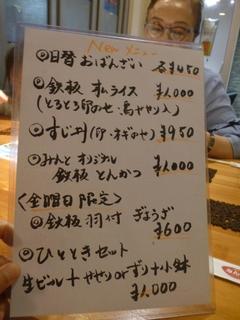 New メニュー
◎日替 おばんざい 各¥450
◎鉄板 オムライス ¥1,000
(とろとろ卵のせ・鳥ヤサイ入)
◎すじ升(卵・ネギのせ) ¥950
◎みんと オリジナル
鉄板 とんかつ ¥1,000
<金曜日 限定>
◎鉄板 羽付 ぎょうざ
¥600
◎ひとときセット
生ビール+ヤサイorずり+小鉢
¥1,000